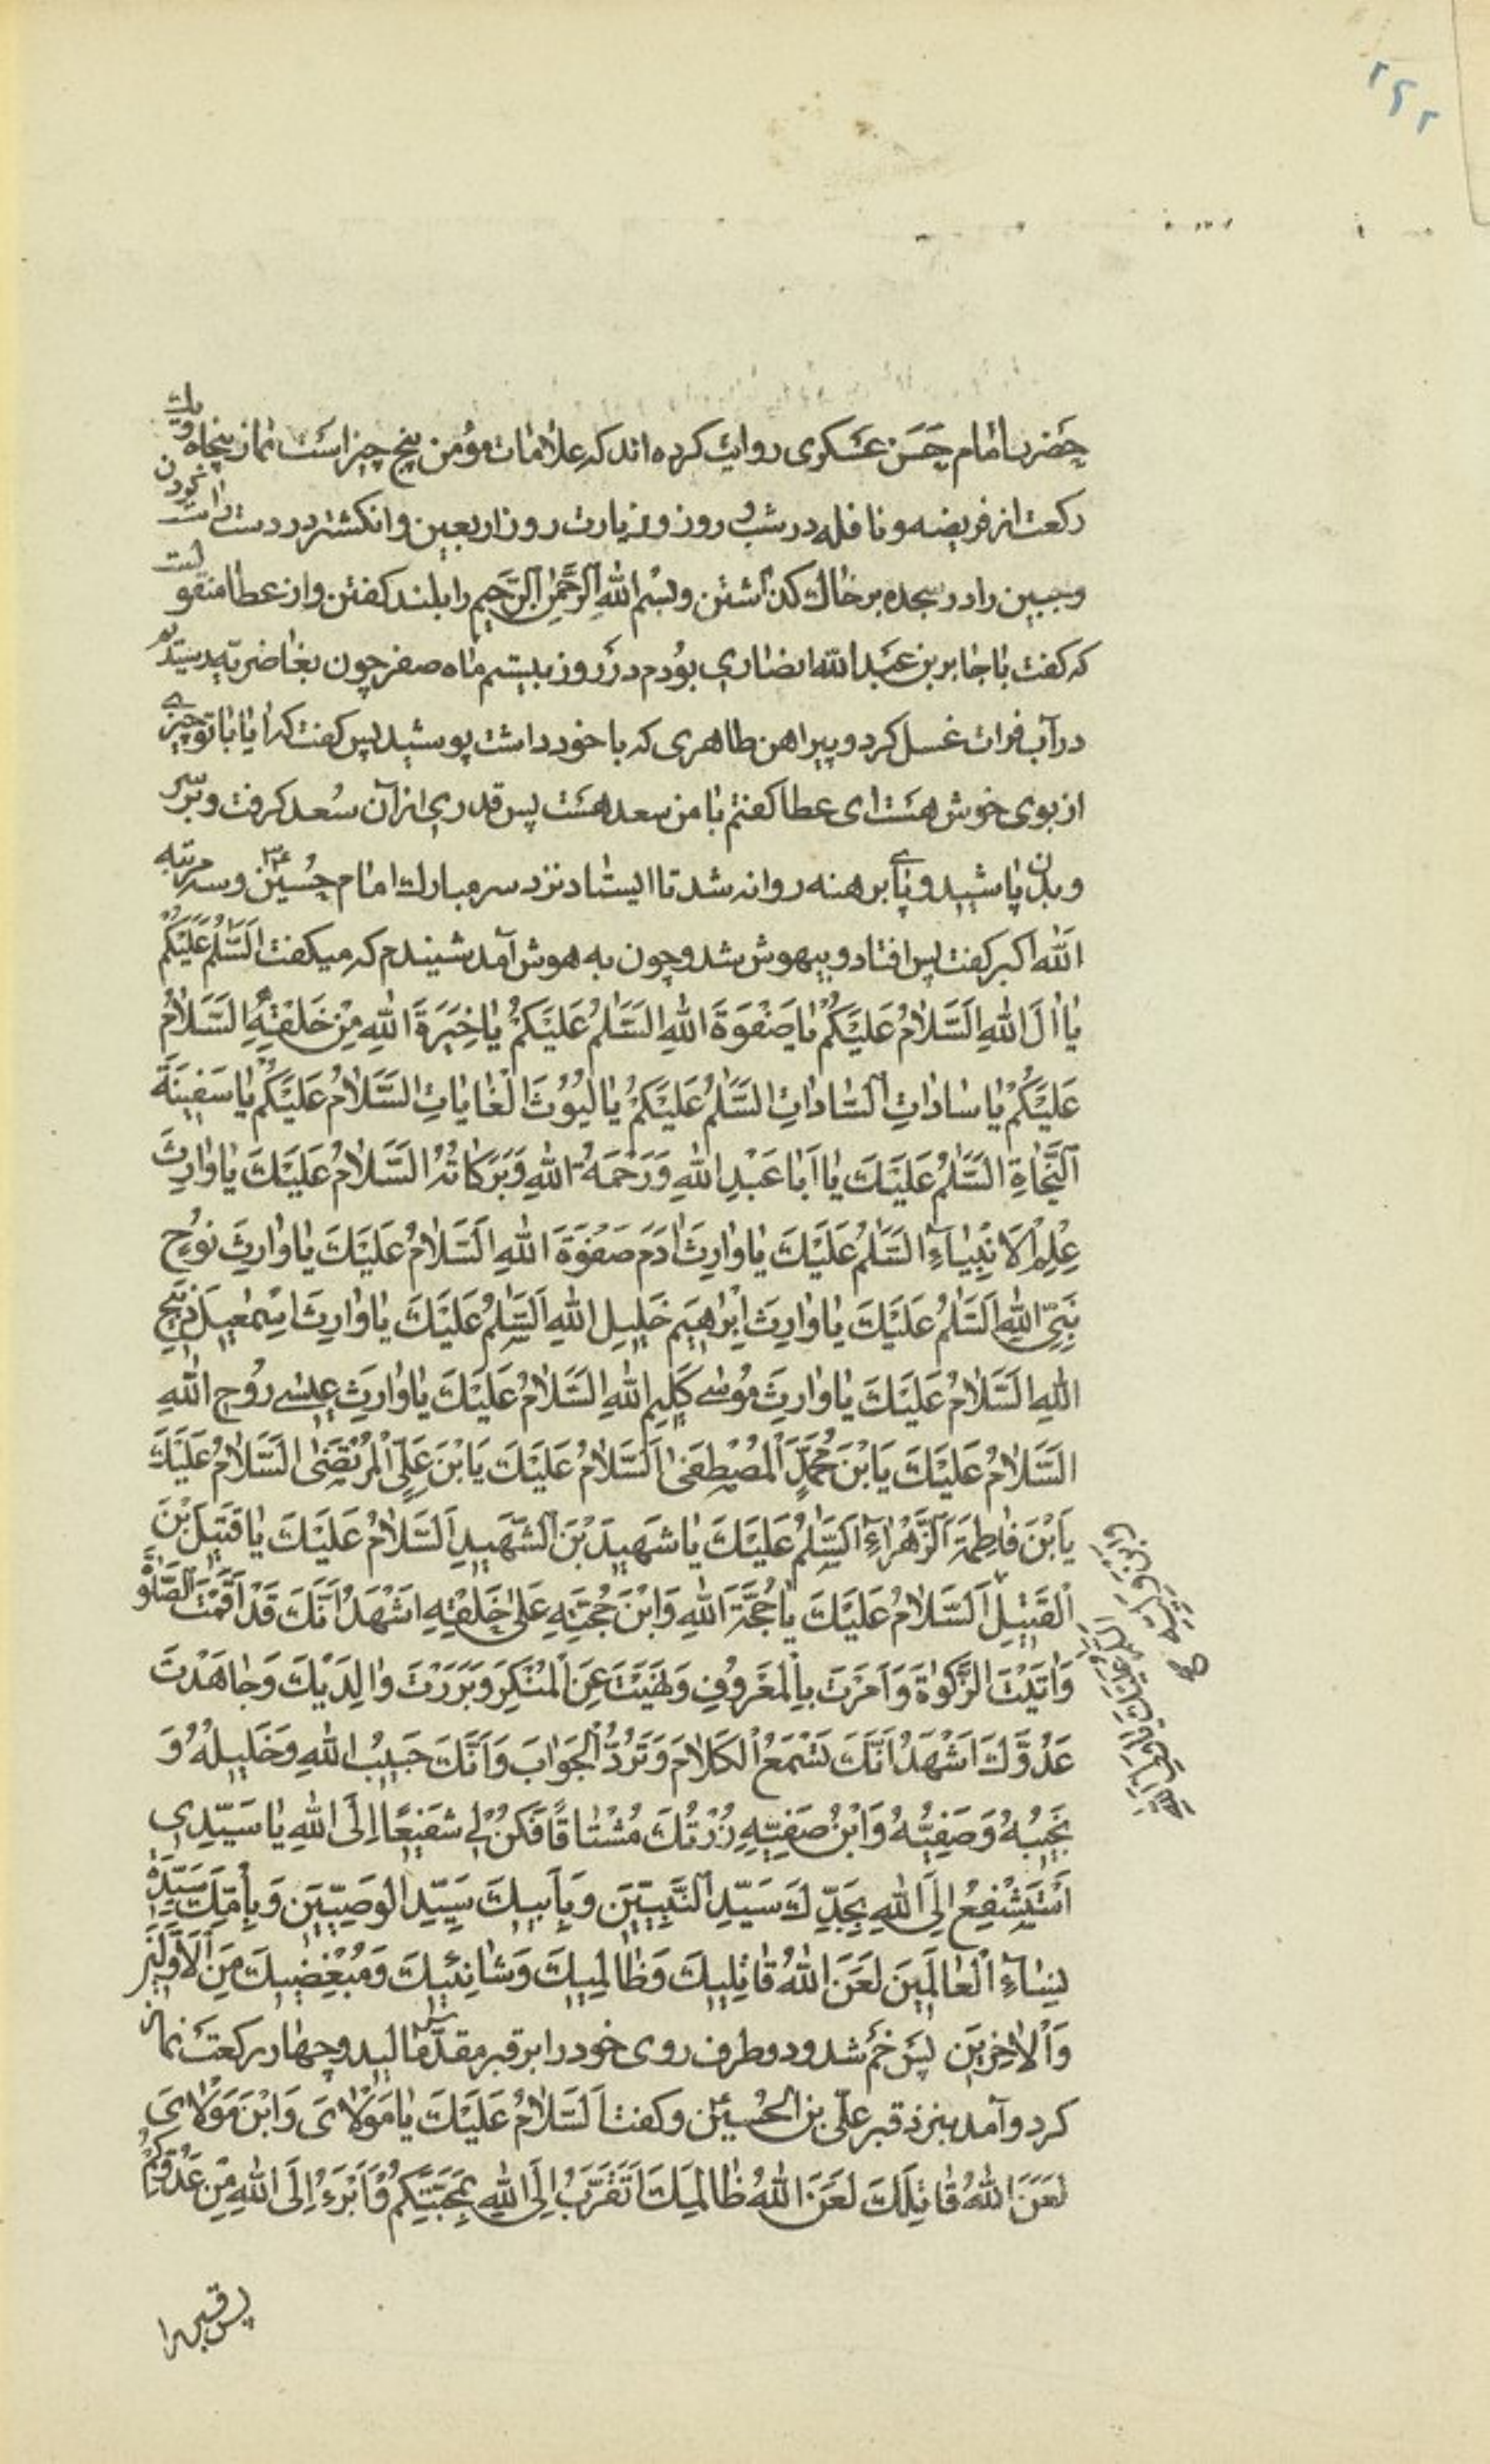 ۲۶۲
حضرت امام حسن عسکری روایت کرده اند که علامات مؤمن پنج چیز است نماز پنجاه و یک
رکعت از فریضه و نافله در شب و روز و زیارت روز اربعین و انکشتر در دست راست نمودن
و جبین را در سجده بر خاک کذاشتن و بِسْمِ اللهِ الرَّحْمٰنِ الرَّحِیمِ را بلند کفتن و از عطا منقولست
که کفت با جابر بن عَبد الله انصاری بودم در روز بیستم ماه صفر چون بغاضریه رسیدیم
در آب فرات غسل کرد و پیراهن طاهری که با خود داشت پوشید پس کفت که ایا با تو چیزے
از بوی خوش هست ای عطا کفتم با من سعد هست پس قدری از آن سُعد کرفت و بر سر
و بدن پاشید و پاے برهنه روانه شد تا ایستاد نزد سر مبارک امام حُسَین ع و سه مرتبه
اَلله اکبر کفت پس افتاد و بیهوش شد و چون به هوش آمد شنیدم که میکفت اَلسَّلٰمُ عَلَیْکُمْ
یٰا اٰلَ اللهِ اَلسَّلٰامُ عَلَیْکُمْ یٰا صَفْوَةَ اللهِ اَلسَّلٰمُ عَلَیْکُمْ یٰا خِیَرَةَ اللهِ مِنْ خَلْقِهِ اَلسَّلٰامُ
عَلَیْکُمْ یٰا سٰادٰاتِ السّٰادٰاتِ اَلسَّلٰمُ عَلَیْکُمْ یٰا لُیُوثَ الْغٰایٰاتِ اَلسَّلٰامُ عَلَیْکُمْ یٰا سَفِینَةَ
النَّجٰاةِ اَلسَّلٰمُ عَلَیْکَ یٰا اَبٰا عَبْدِ اللهِ وَرَحْمَةُ اللهِ وَبَرَکٰاتُهُ اَلسَّلٰامُ عَلَیْکَ یٰا وٰارِثَ
عِلْمِ الْاَنْبِیٰآءِ اَلسَّلٰمُ عَلَیْکَ یٰا وٰارِثَ اٰدَمَ صَفْوَةَ اللهِ اَلسَّلٰامُ عَلَیْکَ یٰا وٰارِثَ نُوحٍ
نَبِیِّ اللهِ اَلسَّلٰمُ عَلَیْکَ یٰا وٰارِثَ اِبْرٰهِیمَ خَلِیلِ اللهِ اَلسَّلٰمُ عَلَیْکَ یٰا وٰارِثَ اِسْمٰعِیلَ ذَبِیحِ
اللهِ اَلسَّلٰامُ عَلَیْکَ یٰا وٰارِثَ مُوسٰی کَلِیمِ اللهِ اَلسَّلٰامُ عَلَیْکَ یٰا وٰارِثَ عِیسٰے رُوحِ اللهِ
اَلسَّلٰامُ عَلَیْکَ یَابْنَ مُحَمَّدٍ الْمُصْطَفٰی اَلسَّلٰامُ عَلَیْکَ یَابْنَ عَلِیٍّ الْمُرْتَضٰی اَلسَّلٰامُ عَلَیْکَ
یَابْنَ فٰاطِمَةَ الزَّهْرٰآءِ اَلسَّلٰمُ عَلَیْکَ یٰا شَهِیدَ بْنَ الشَّهِیدِ اَلسَّلٰامُ عَلَیْکَ یٰا قَتِیلَ بْنَ
الْقَتِیلِ اَلسَّلٰامُ عَلَیْکَ یٰا حُجَّةَ اللهِ وَابْنَ حُجَّتِهِ عَلٰی خَلْقِهِ اَشْهَدُ اَنَّکَ قَدْ اَقَمْتَ الصَّلٰوةَ
وَاٰتَیْتَ الزَّکٰوةَ وَاَمَرْتَ بِالْمَعْرُوفِ وَنَهَیْتَ عَنِ الْمُنْکَرِ وَبَرَرْتَ وٰالِدَیْکَ وَجٰاهَدْتَ
عَدُوَّکَ اَشْهَدُ اَنَّکَ تَسْمَعُ الْکَلٰامَ وَتَرُدُّ الْجَوٰابَ وَاَنَّکَ حَبِیبُ اللهِ وَخَلِیلُهُ وَ
نَجِیبُهُ وَصَفِیُّهُ وَابْنُ صَفِیِّهِ زُرْتُکَ مُشْتٰاقًا فَکُنْ لِی شَفِیعًا اِلَی اللهِ یٰا سَیِّدِی
اَسْتَشْفِعُ اِلَی اللهِ بِجَدِّکَ سَیِّدِ النَّبِیِّینَ وَبِاَبِیکَ سَیِّدِ الْوَصِیِّینَ وَبِاُمِّکَ سَیِّدَةِ
نِسٰآءِ الْعٰالَمِینَ لَعَنَ اللهُ قٰاتِلِیکَ وَظٰالِمِیکَ وَشٰانِئِیکَ وَمُبْغِضِیکَ مِنَ الْاَوَّلِینَ
وَالْاٰخِرِینَ پس خم شد و دو طرف روی خود را بر قبر مقدّس مالید و چهار رکعت نماز
کرد و آمد بنزد قبر علیّ بن الحُسین ع و کفت اَلسَّلٰامُ عَلَیْکَ یٰا مَوْلٰایَ وَابْنَ مَوْلٰایَ
لَعَنَ اللهُ قٰاتِلَکَ لَعَنَ اللهُ ظٰالِمَیکَ اَتَقَرَّبُ اِلَی اللهِ بِمَحَبَّتِکُمْ وَاَبْرَءُ اِلَی اللهِ مِنْ عَدُوِّکُمْ
السَّلٰمُ عَلَیْکَ یٰا وَلِیَّ اللهِ
وَابْنَ وَلِیِّهِ
پس قبر را